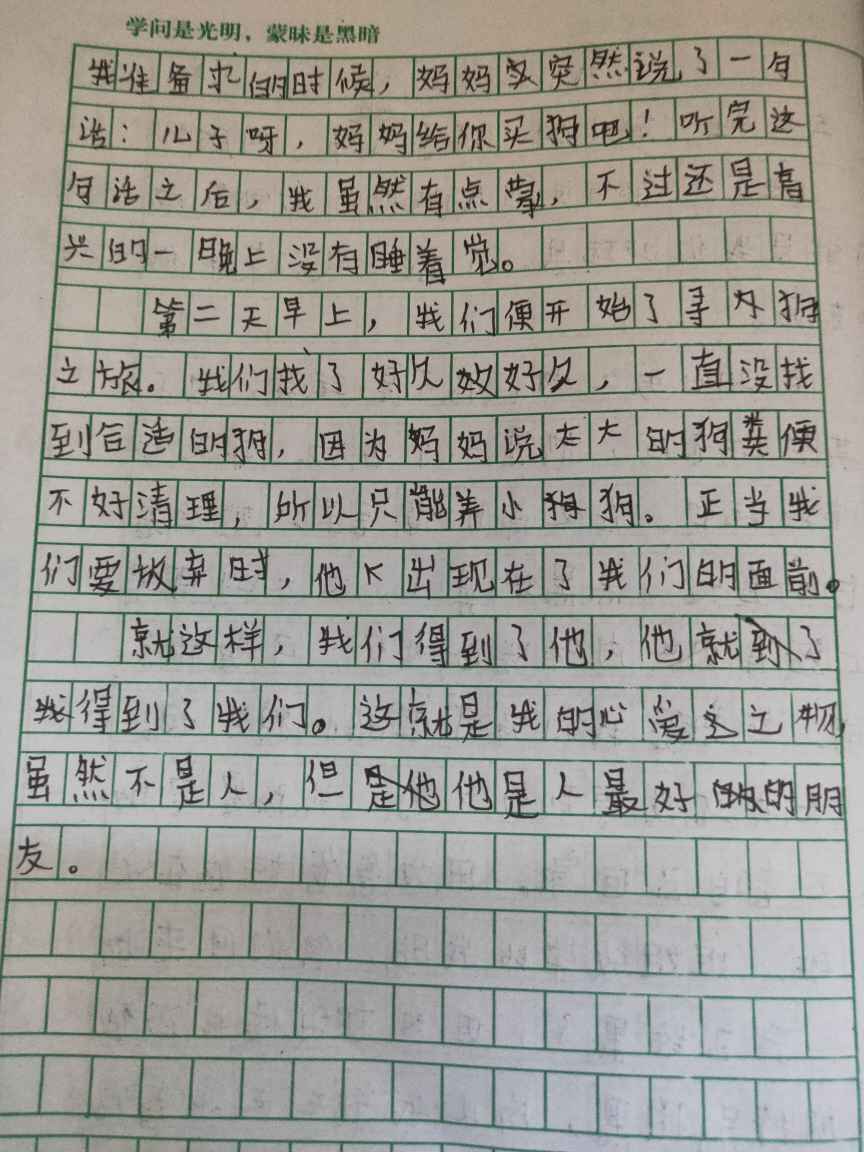 学问是光明，蒙昧是黑暗
我准备求的时候，妈妈突然说了一句
话：儿子呀，妈妈给你买狗吧！听完这
句话之后，我虽然有点蒙，不过还是高
兴的一晚上没有睡着觉。
第二天早上，我们便开始了寻狗
之旅。我们找了好久好久，一直没找
到合适的狗，因为妈妈说大的狗粪便
不好清理，所以只能养小狗狗。正当我
们要放弃时，他出现在了我们的面前。
就这样，我们得到了他，他就
得到了我们。这就是我的心爱之物，
虽然不是人，但他是人最好的朋
友。